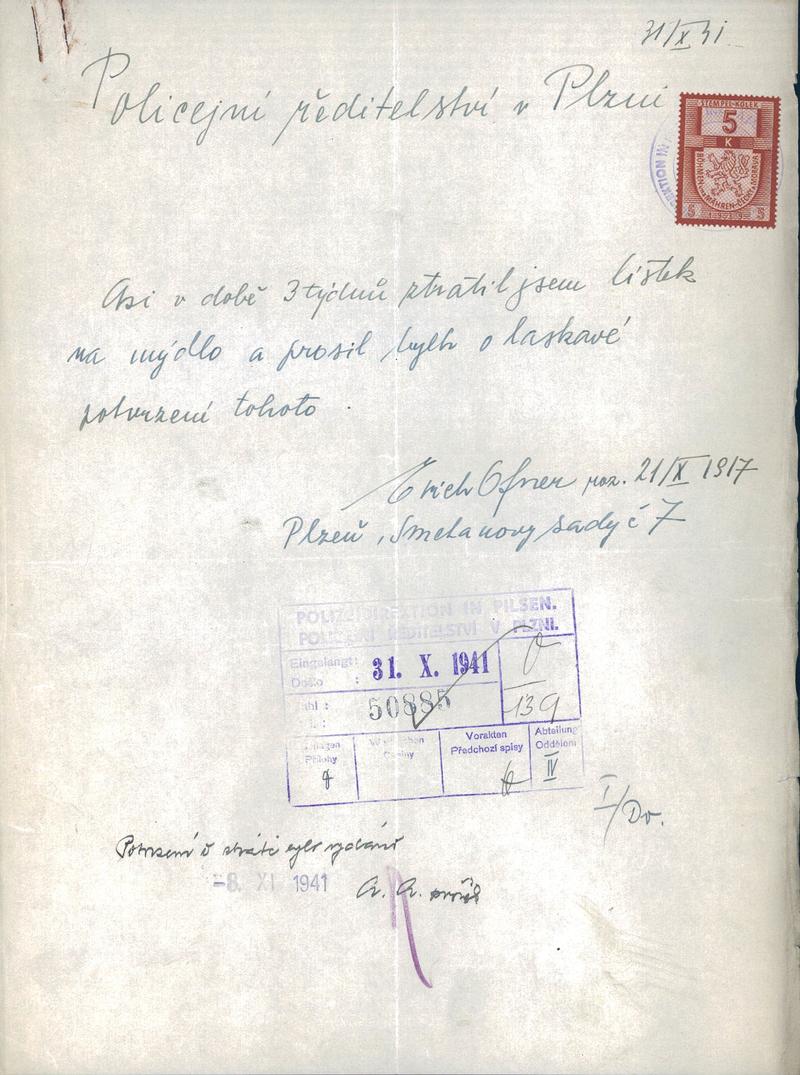 31/X 41.
Policejní ředitelství v Plzni
STEMPEL-KOLEK
5
K
BÖHMEN UND MÄHREN-ČECHY A MORAVA
5 5
Asi v době 3 týdnů ztratil jsem lístek
na mýdlo a prosil bych o laskavé
potvrzení tohoto.
Erich Ofner nar. 21/X 1917
Plzeň, Smetanovy sady č 7
POLIZEIDIREKTION IN PILSEN.
POLICEJNÍ ŘEDITELSTVÍ V PLZNI.
Eingelangt:
Došlo :
31. X. 1941
Zahl :
50885
139
Přílohy
Vorakten
Předchozí spisy
Abteilung
Oddělení
IV
I/Do.
Potvrzení o ztrátě bylo vydáno
-8. XI 1941
a. a.